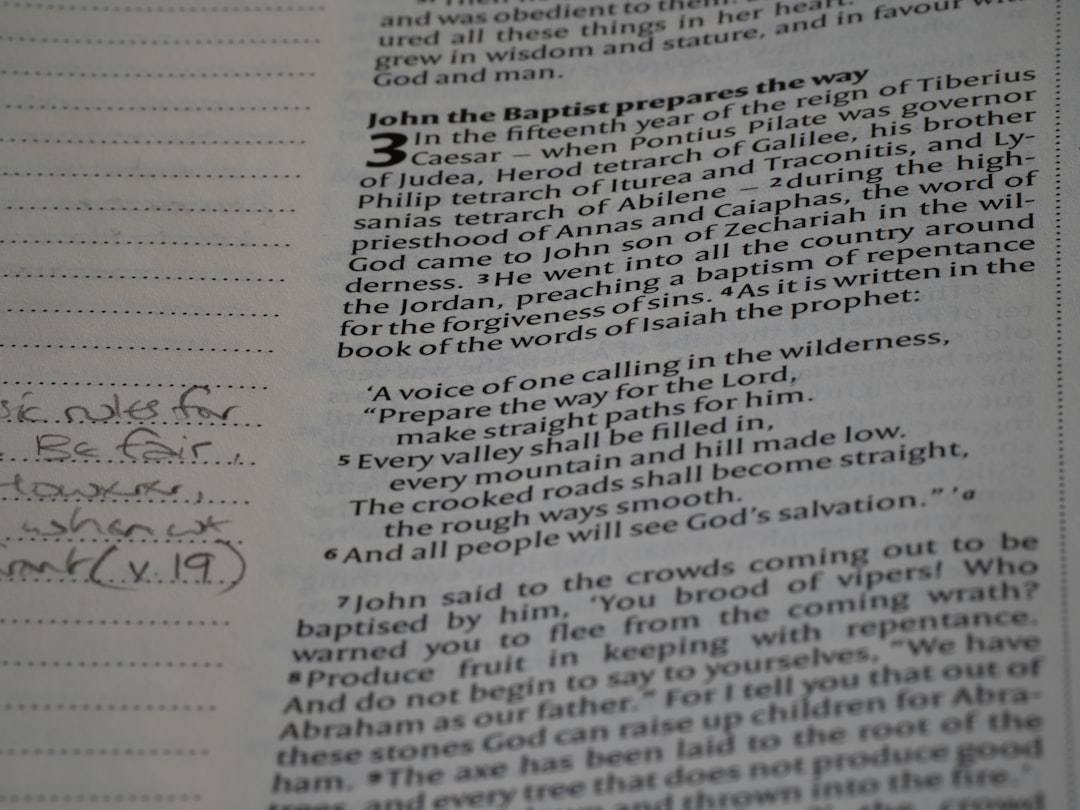 and was obedient to them.
ured all these things in her heart.
grew in wisdom and stature, and in favour with
God and man.
John the Baptist prepares the way
3 In the fifteenth year of the reign of Tiberius
Caesar – when Pontius Pilate was governor
of Judea, Herod tetrarch of Galilee, his brother
Philip tetrarch of Iturea and Traconitis, and Ly-
sanias tetrarch of Abilene – 2 during the high-
priesthood of Annas and Caiaphas, the word of
God came to John son of Zechariah in the wil-
derness. 3 He went into all the country around
the Jordan, preaching a baptism of repentance
for the forgiveness of sins. 4 As it is written in the
book of the words of Isaiah the prophet:
‘A voice of one calling in the wilderness,
“Prepare the way for the Lord,
make straight paths for him.
5 Every valley shall be filled in,
every mountain and hill made low.
The crooked roads shall become straight,
the rough ways smooth.
6 And all people will see God’s salvation.” ’ a
7 John said to the crowds coming out to be
baptised by him, ‘You brood of vipers! Who
warned you to flee from the coming wrath?
8 Produce fruit in keeping with repentance.
And do not begin to say to yourselves, “We have
Abraham as our father.” For I tell you that out of
these stones God can raise up children for Abra-
ham. 9 The axe has been laid to the root of the
trees, and every tree that does not produce good
and thrown into the fire.’
notes for
Be fair,
However,
when we
(v.19)